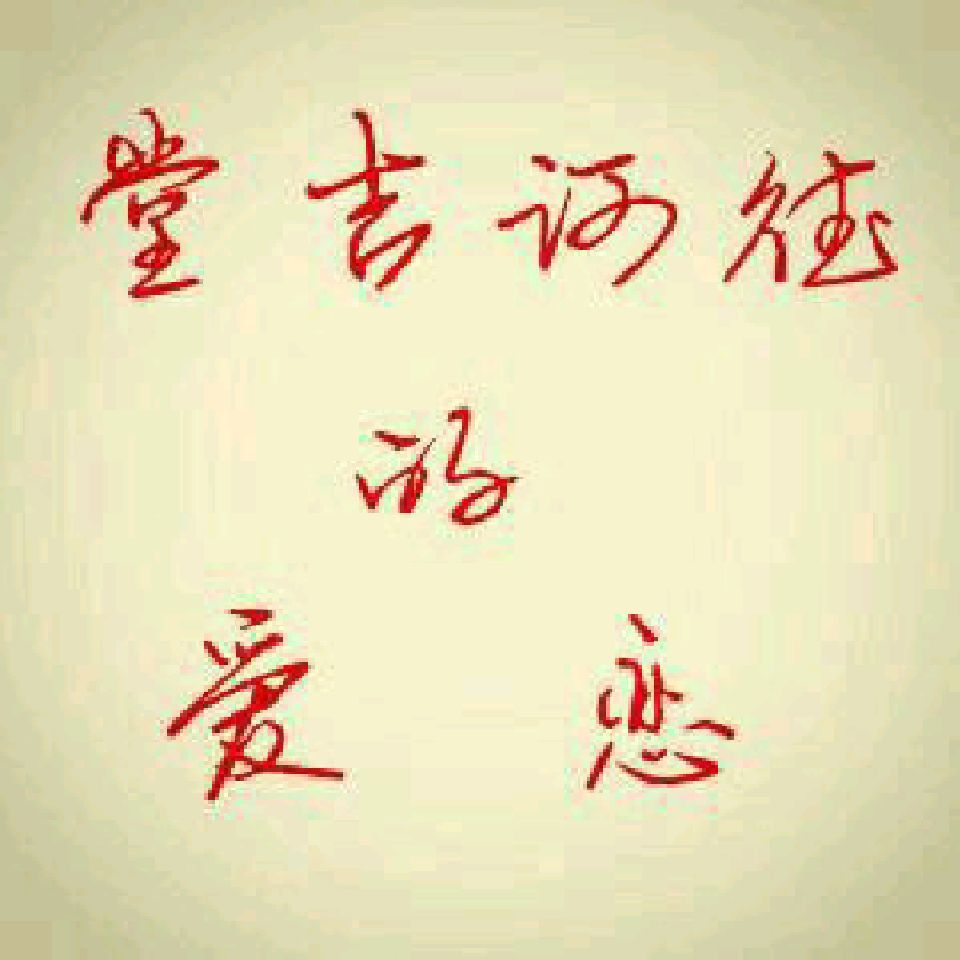 堂吉诃德
的
爱恋